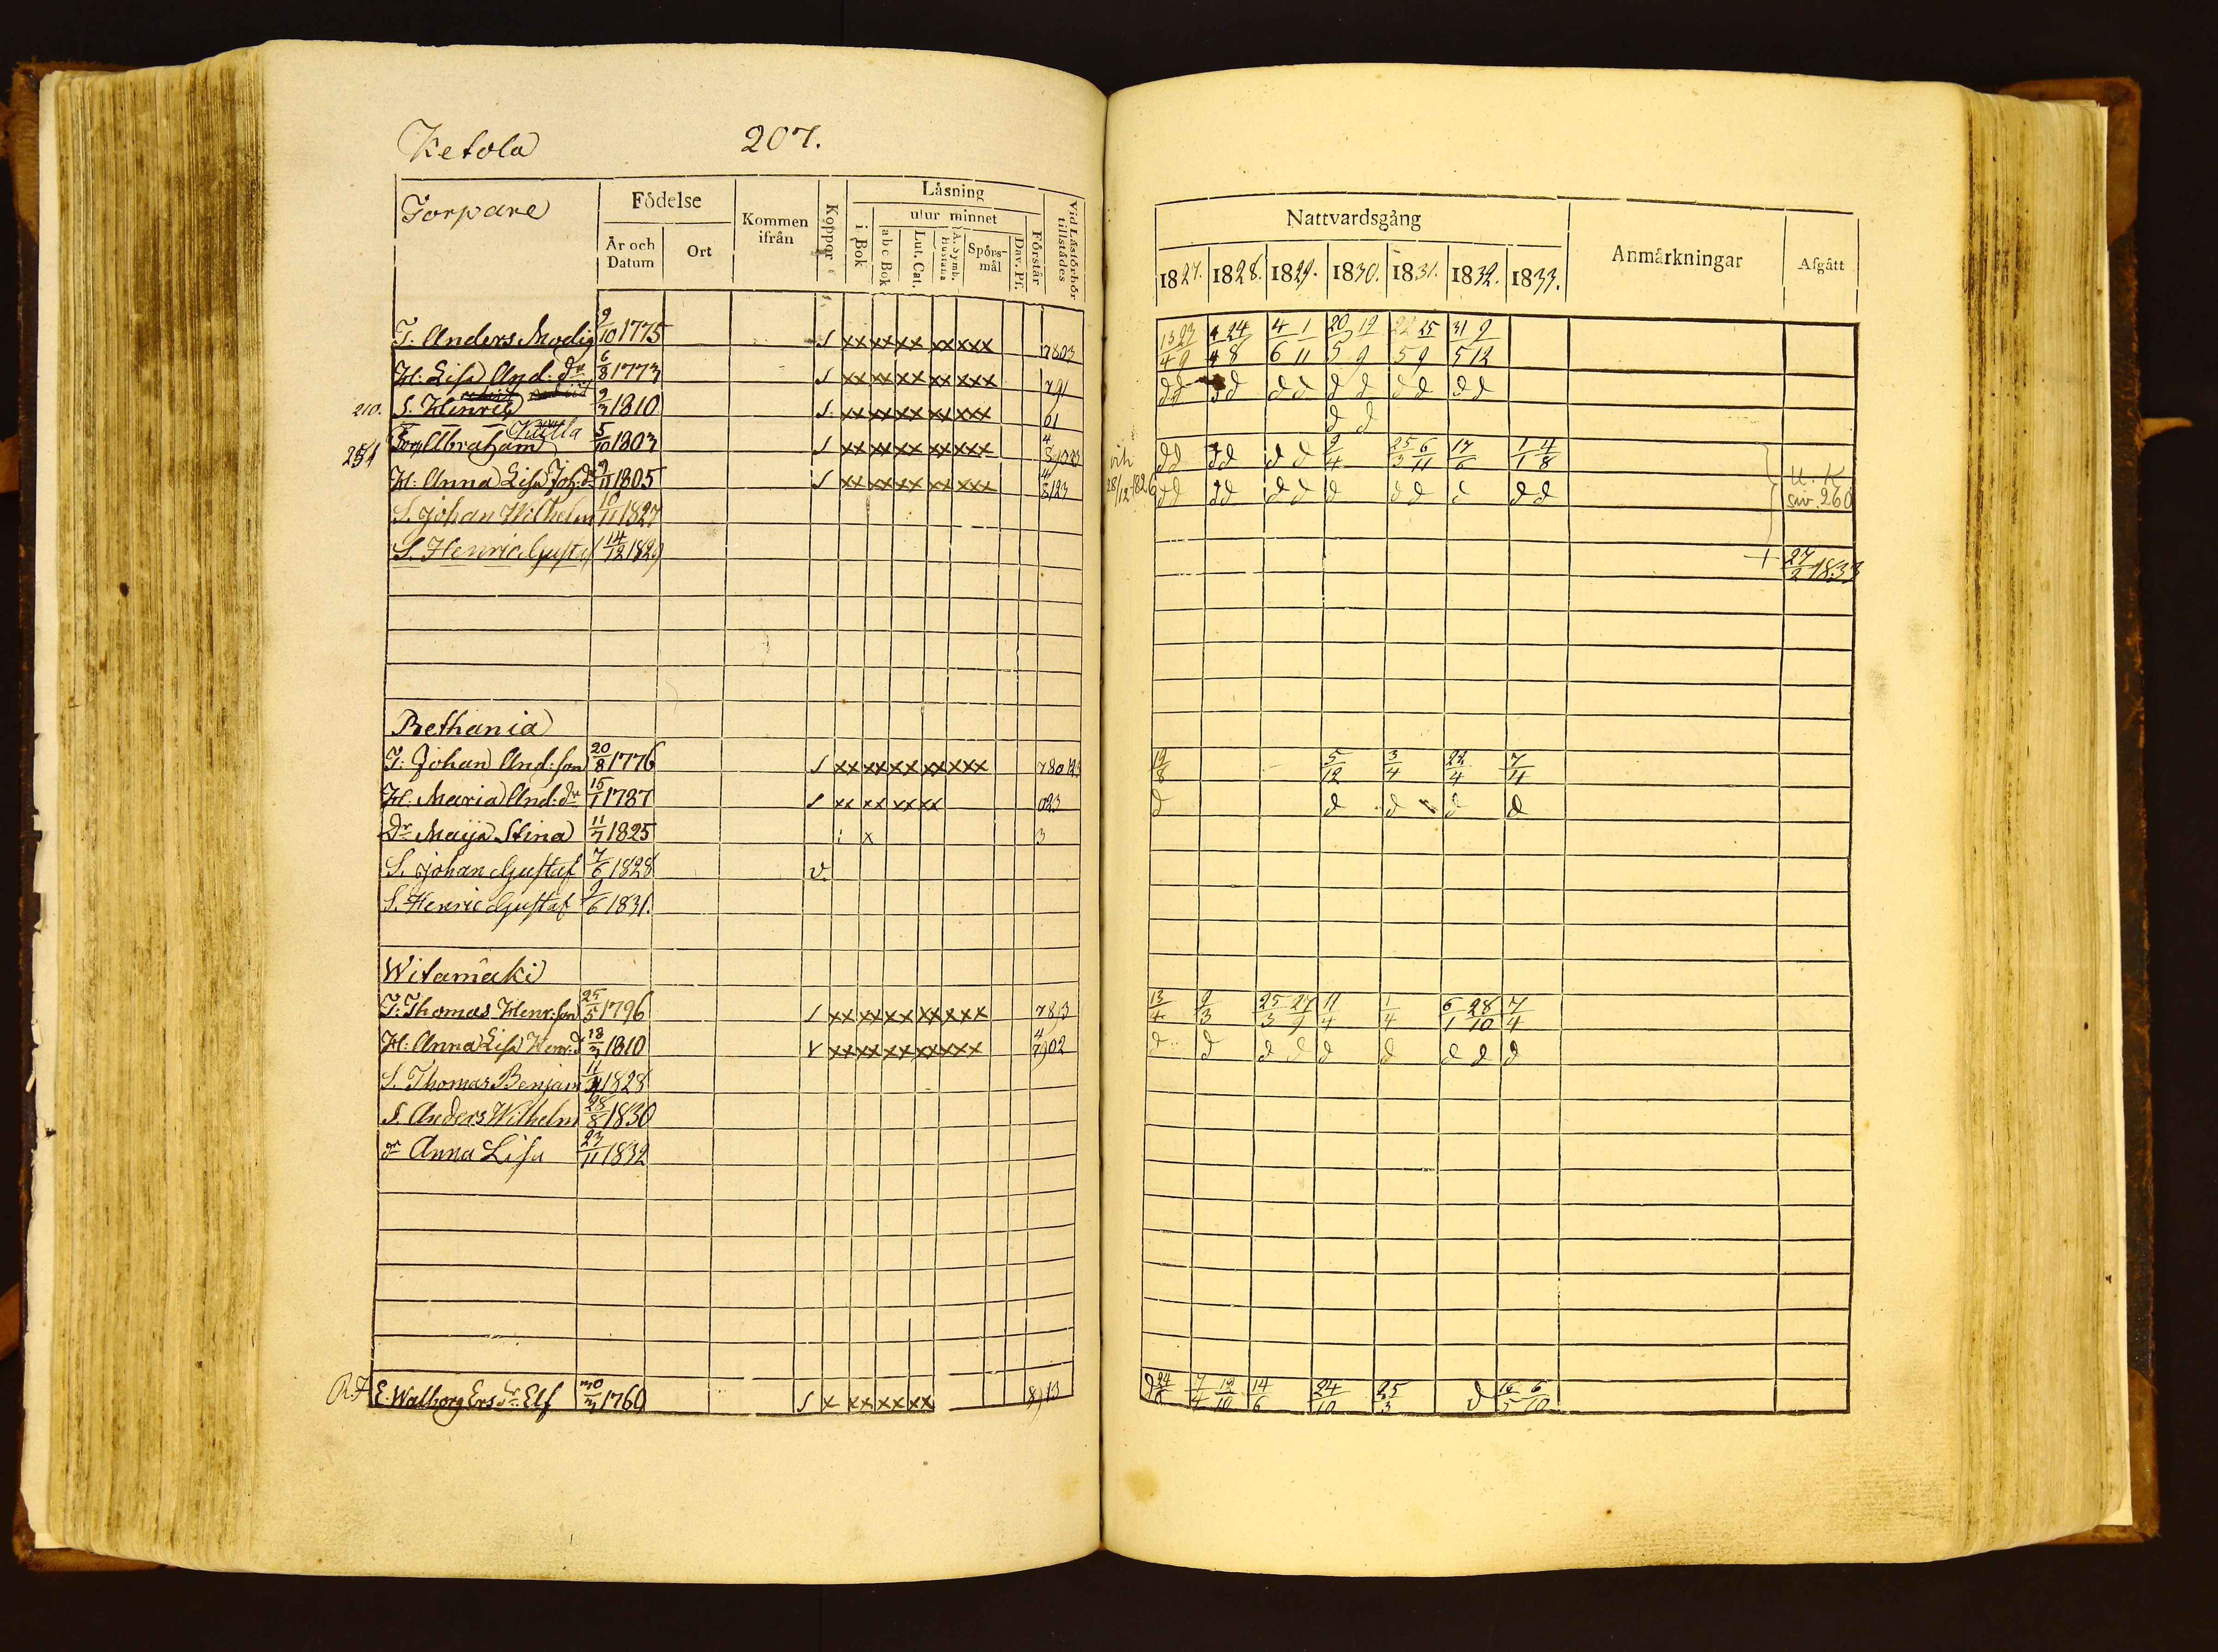 Ketola 207.
Torpare
Födelse
År och Datum
Ort
Kommen ifrån
Koppor
Läsning
i Bok
utur minnet
abc Bok
Lut. Cat.
A. Symb. Hustafla
Spörsmål
Dav. Ps.
Förstår
Vid Läsförhör tillstädes
T: Anders Modig 9/10 1775 S xx xx xx xx xxx 7803
H: Lisa And: dr 6/8 1773 S xx xx xx xx xxx 791
210. S. Henric 9/3 1810 S. xx xx xx xx xxx 61
Kutila
254 Abraham 5/10 1803 S xx xx xx xx xxx
H: Anna Lisa Joh: dr 9/11 1805 S xx xx xx xx xxx 4 8123
S. Johan Wilhelm 10/11 1827
S. Henric Gustaf 14/12 1829
Bethania
T: Johan And: son 20/8 1776 S xx xx xx xx xxx 780123
H: Maria And: dr 15/1 1787 S xx xx xx xx 023
Dr Maija Stina 11/7 1825 i x 3
S. Johan Gustaf 7/6 1828 v.
S. Henric Gustaf 9/6 1831.
Witamäki
T: Thomas Henr: son 25/5 1796 S xx xx xx xx xxx 7813
H: Anna Lisa Henr: d 18/3 1810 V xx xx xx xx xxx 4 7902
S. Thomas Benjam 1828
S. Anders Wilhelm 28/8 1830
dr Anna Lisa 23/11 1832
R.F E. Walborg Ers dr Elf 30/3 1760 S x xx xx xx 8913
Nattvardsgång
1827. 1828. 1829. 1830. 1831. 1832. 1833.
Anmärkningar
Afgått
13/4 23/9 4/4 24/8 4/6 1/11 20/5 12/9 22/5 25/9 31/5 9/12
d d d d d d d d d d d d
d d
vih d d d d d d 9/4 25/3 6/11 17/6 1/1 4/8
28/12 1826 d d d d d d d d d d d d
U. K
siv. 260
+ 27/2 1833
12/8 5/12 3/4 22/4 7/4
d d d d d
13/4 9/3 25/3 27/9 11/4 1/4 6/1 28/10 7/4
d d d d d d d d d
d 24/8 7/4 12/10 14/6 24/10 25/3 d 16/5 6/10